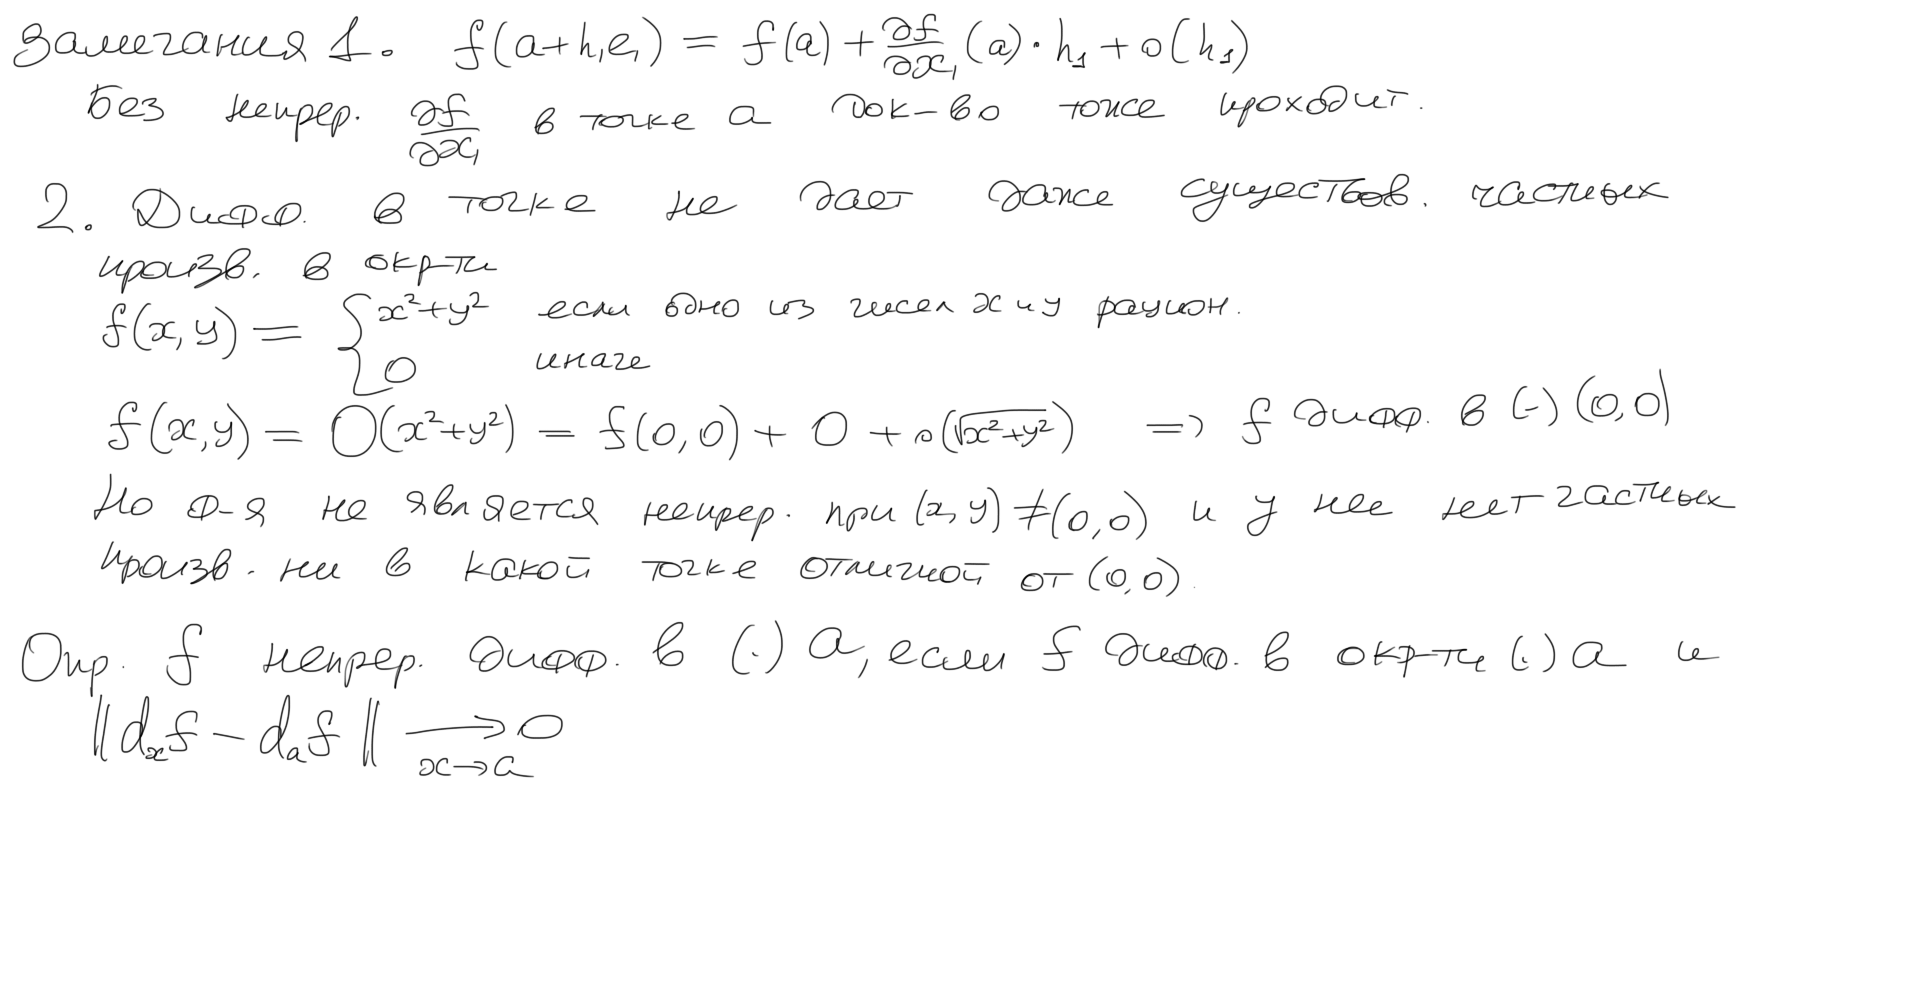 Замечания 1. f(a+h₁e₁) = f(a) + ∂f/∂x₁ (a)·h₁ + o(h₁)
Без непрер. ∂f/∂x₁ в точке a док-во тоже проходит.
2. Дифф. в точке не дает даже существов. частных
произв. в окр-ти
f(x,y) = { x²+y² если одно из чисел x и y рацион.
0 иначе
f(x,y) = O(x²+y²) = f(0,0) + 0 + o(√x²+y²) => f дифф. в (·) (0,0)
Но ф-я не является непрер. при (x,y) ≠ (0,0) и у нее нет частных
произв. ни в какой точке отличной от (0,0).
Опр. f непрер. дифф. в (·) a, если f дифф. в окр-ти (·) a и
‖dₓf − dₐf‖ ⟶ 0
x→a